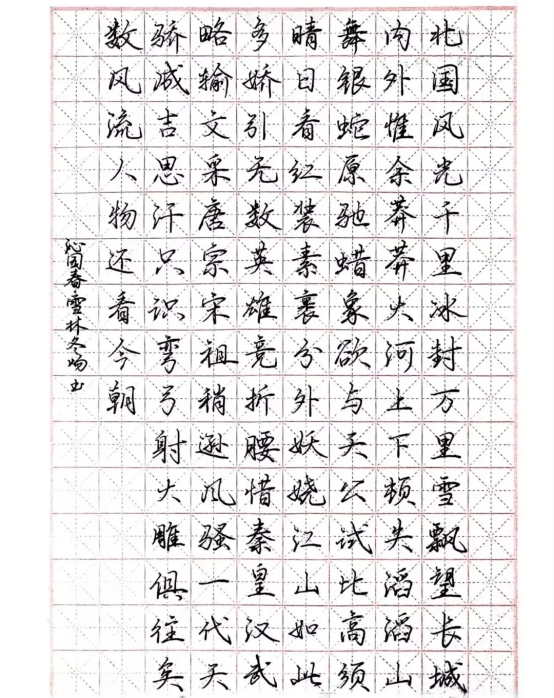 北国风光千里冰封万里雪飘望长城
内外惟余莽莽大河上下顿失滔滔山
舞银蛇原驰蜡象欲与天公试比高须
晴日看红装素裹分外妖娆江山如此
多娇引无数英雄竞折腰惜秦皇汉武
略输文采唐宗宋祖稍逊风骚一代天
骄成吉思汗只识弯弓射大雕俱往矣
数风流人物还看今朝
沁园春雪林冬书